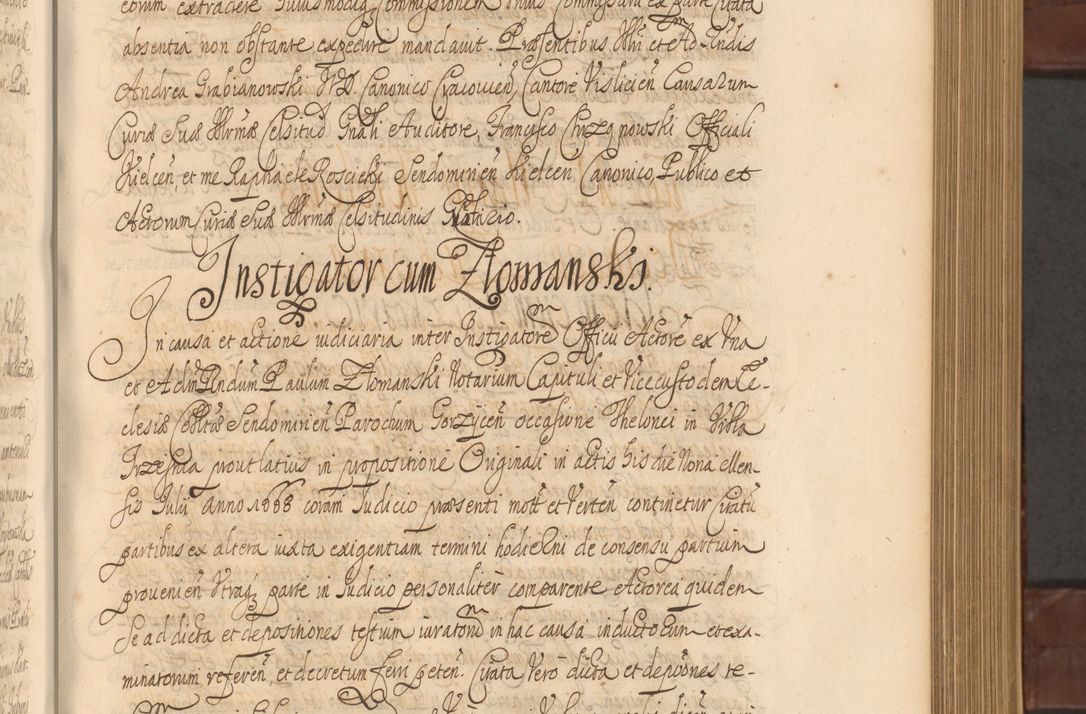 eorum extradere huiusmodi Commissionem unius Commissarii ex parte Citata
absentia non obstante expedire mandavit. Præsentibus Illri et Ad. Rndis
Andrea Grabianowski I.V.D. Canonico Cracovien, Cantore Vislicien Causarum
Curiæ Suæ Illrmæ Celsitud Gnali Auditore, Francisco Chrząnowski Officiali
Kielcen, et me Raphaele Roscicki Sendomirien Kielcen Canonico, Publico et
Actorum Curiæ Suæ Illrmæ Celsitudinis Notario.
Instigator cum Złomanski.
In causa et actione iudiciaria inter Instigatorem Officii Actore ex Vna
et Adm Rndum Paulum Złomanski Notarium Capituli et Vicecustodem Ec-
clesiæ Colltæ Sendomirien Parochum Gorzycen occasione Thelonei in Villa
Trzesnia prout latius in propositione Originali in actis his die Nona Men-
sis Iulii anno 1688 coram Iudicio præsenti mot et Verten continetur Citatu
partibus ex altera iuxta exigentiam termini hodierni de consensu partium
provenien Vtraq parte in Iudicio personaliter comparente Actorea quidem
se ad dicta et depositiones testium iuratorum in hac causa inductorum et exa-
minatorum referen, et decretum ferri peten. Citata Vero dicta et depoones te-